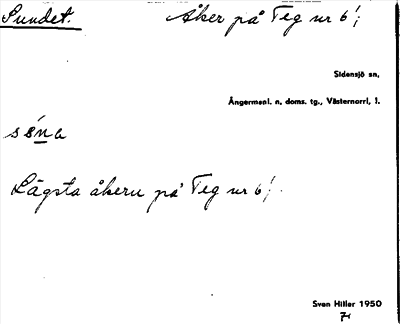 Sundet. Åker på Teg nr 6¹;
Sidensjö sn,
Ångermanl. n, doms. tg., Västernorrl, l.
Lägsta åkern på Teg nr 6¹;
Sven Hiller 1950